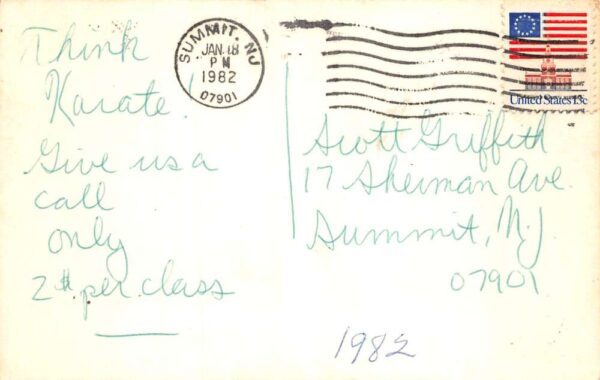 Think
Karate!
Give us a
call
only
2$ per class
SUMMIT, NJ
JAN 18
PM
1982
07901
United States 13c
Scott Griffith
17 Sherman Ave.
Summit, NJ
07901
1982